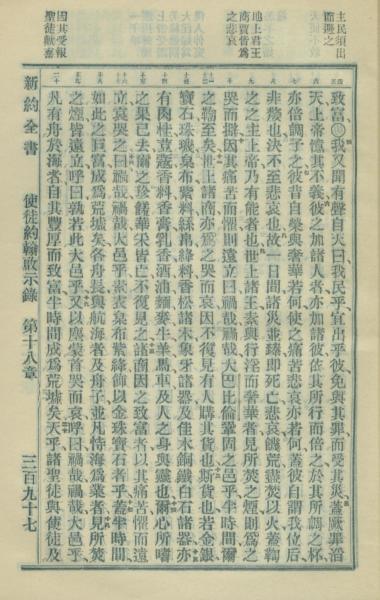 主民須出
而避之
地上君王
商賈皆為
之悲哀
因其受報
聖徒獻奮
致富我又聞有聲自天曰我民乎宜出乎彼免與其罪而受其災蓋厥罪滔
天上帝憶其不義彼之加諸人者亦加諸彼依其所行而倍之於其所調之杯
亦倍調予之彼昔自榮與奢華若何使之痛苦悲哀亦若何蓋彼自謂我位后
非嫠也決不至悲哀也故一日間諸災並臻即死亡悲哀饑荒燬焚以火蓋鞫
之之主上帝乃有能者也世上諸王素與行淫而奢華者見所焚之煙則為之
哭而擗因其痛苦而懼則遠立曰禍哉禍哉大巴比倫鞏固之邑乎半時間爾
之鞫至矣世上諸商亦為之哭而哀因不復見有人購其貨也斯貨也若金銀
寶石珠璣枲布紫料絲帛絳料香松諸木象牙諸器及佳木銅鐵白石諸器亦
有肉桂荳蔻香料香膏乳香酒油麵麥牛羊馬車及人之身與靈也爾心所嗜
之果已去爾之珍饈華宋皆亡不復見之諸商因之致富者以其痛苦懼而遠
立哀哭之曰禍哉禍哉大邑乎素衣枲布紫絳飾以金珠寶石者乎蓋半時間
如此之巨富成為荒墟矣各舟長與航海者及舟子並凡恃海為業者見所焚
之煙皆遠立呼曰孰若此大邑乎又以塵蒙首哭而哀呼曰禍哉禍哉大邑乎
凡有舟於海者自其豐厚而致富半時間成為荒墟矣天乎諸聖徒與使徒及
新約全書 使徒約翰啟示錄 第十八章 三百九十七